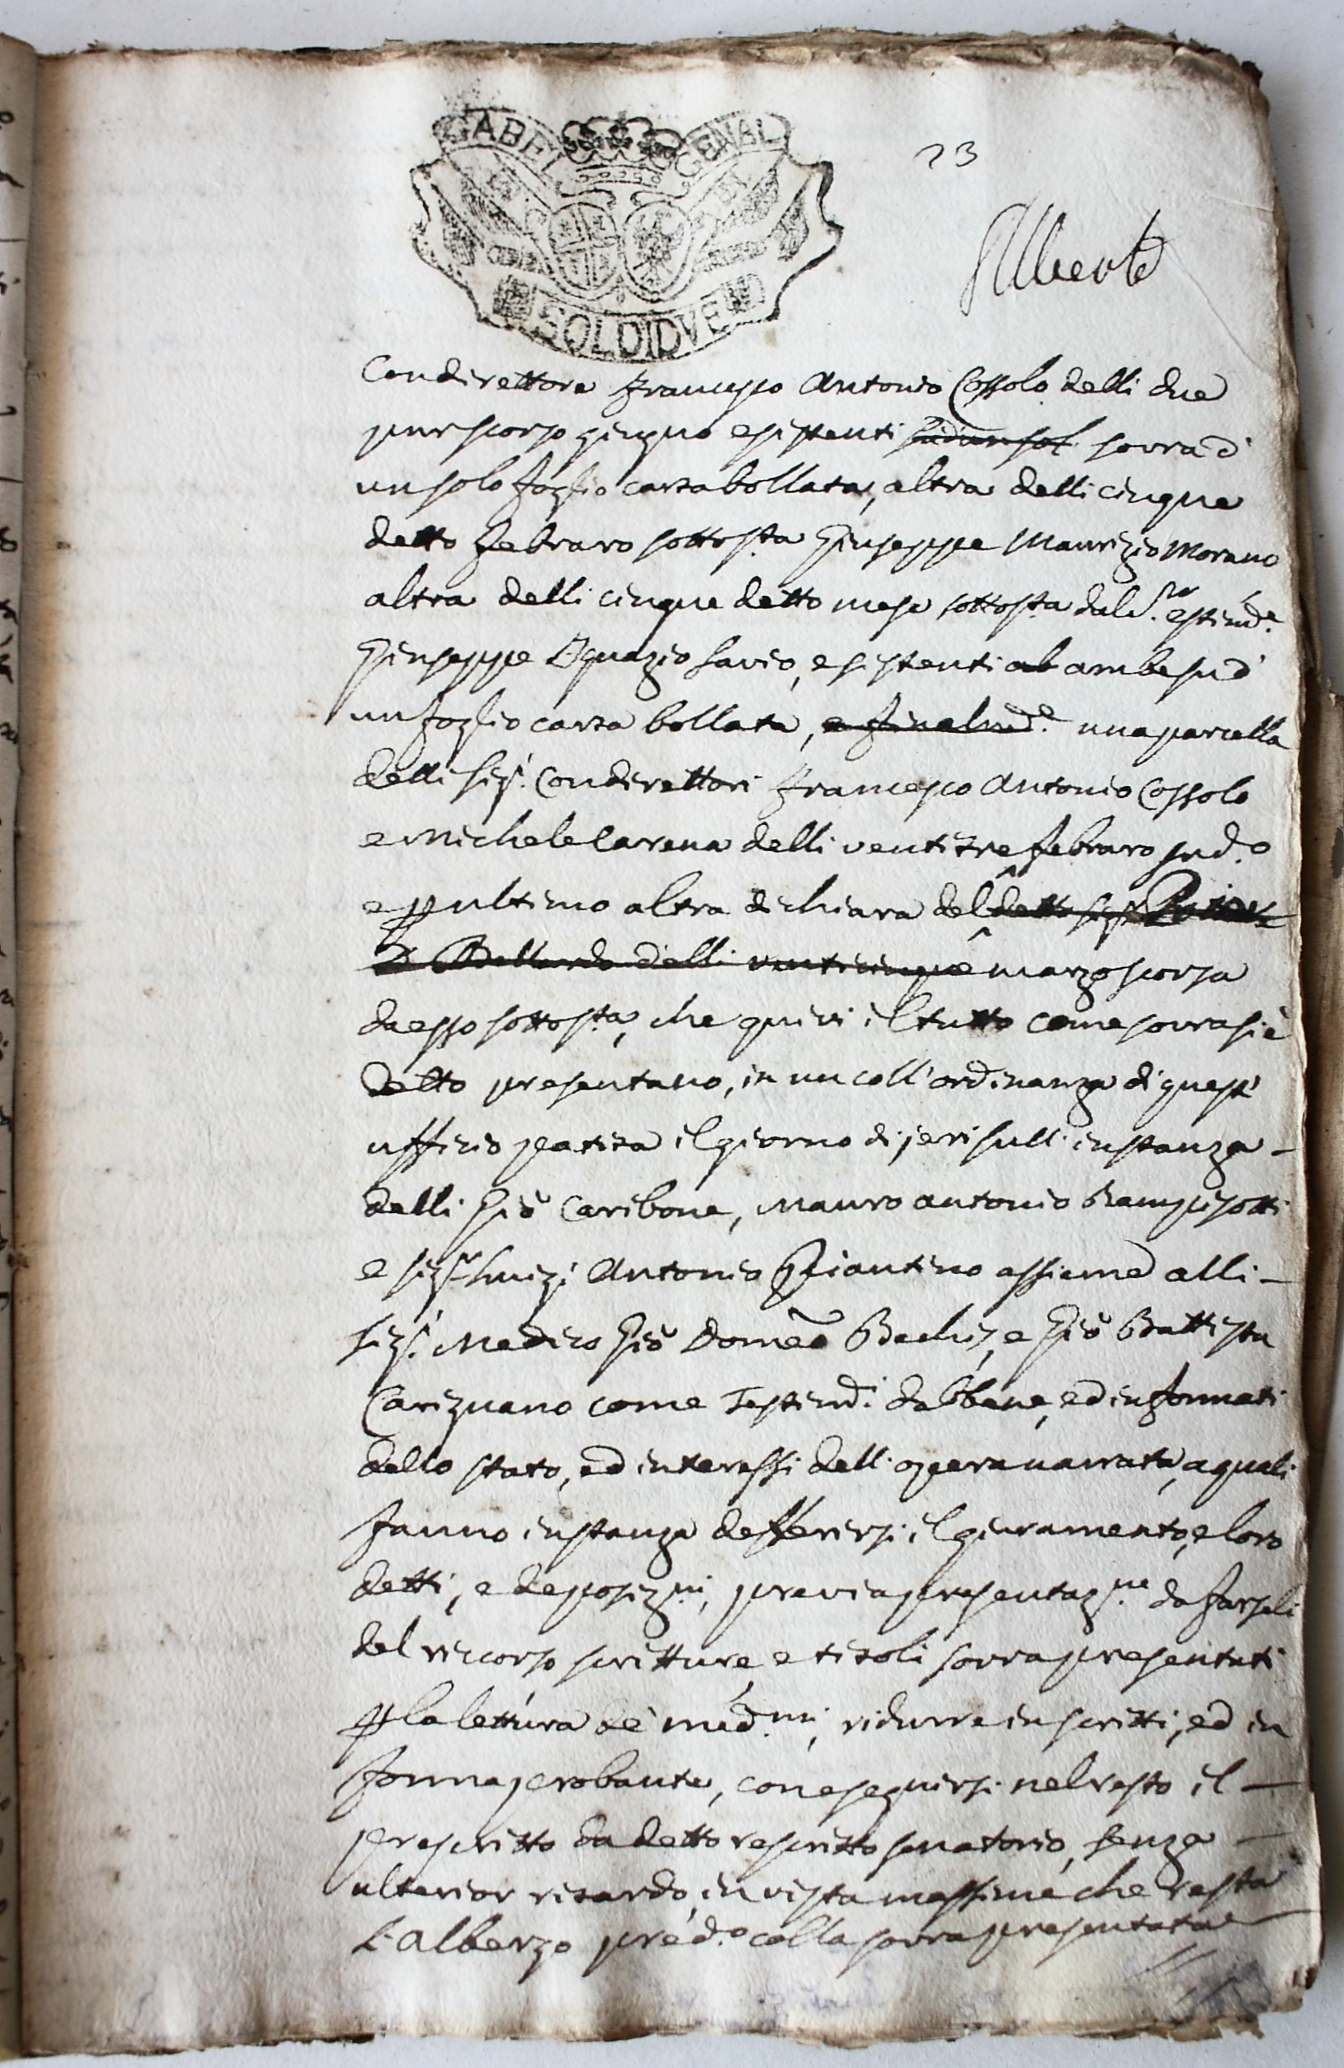 GABEL GENAL
23
Alberto
SOLDI DVE
Condirettore Francesco Antonio Cossolo delli due
pur scorso giugno esistenti sovra d'
un solo foglio carta bollata, altra delli cinque
detto febraro sottosta Giuseppe Maurizio Morano
altra delli cinque detto mese sottosta dal
Giuseppe Ignazio Savio, esistenti ambe su d'
un foglio carta bollata, e finalmde. una parcella
delli Sigri. Condirettori Francesco Antonio Cossolo
e Michele Carena delli ventitre febraro sudo.
e p ultimo altra dichiara del detto
delli venticinque marzo scorsa
da esso sottosta, che quivi il tutto come sovra si è
detto presentano, in un coll'ordinanza di quest'
uffizio patita il giorno di jeri sull'instanza
delli Gio Caribone, Mauro Antonio Rampizotti
e Sigr Luigi Antonio Giantino assieme alli
Sigri. Medico Gio Domeo Bachis, e Gio Battista
Carignano come Testimdi. dabbene, ed informati
dello stato, ed interessi dell'opera narrata, a quali
fanno instanza defferirsi il giuramento, e loro
detti, e deposizni, previa presentazne. da farseli
del ricorso scritture, e titoli sovra presentati
p la lettura de' medmi, ridurre in scritti, ed in
forma probante, con eseguirsi nel resto il
prescritto da detto rescritto senatorio, senza
ulterior ritardo, in vista massime che resta
L'Albergo predo. colla sovra presentata